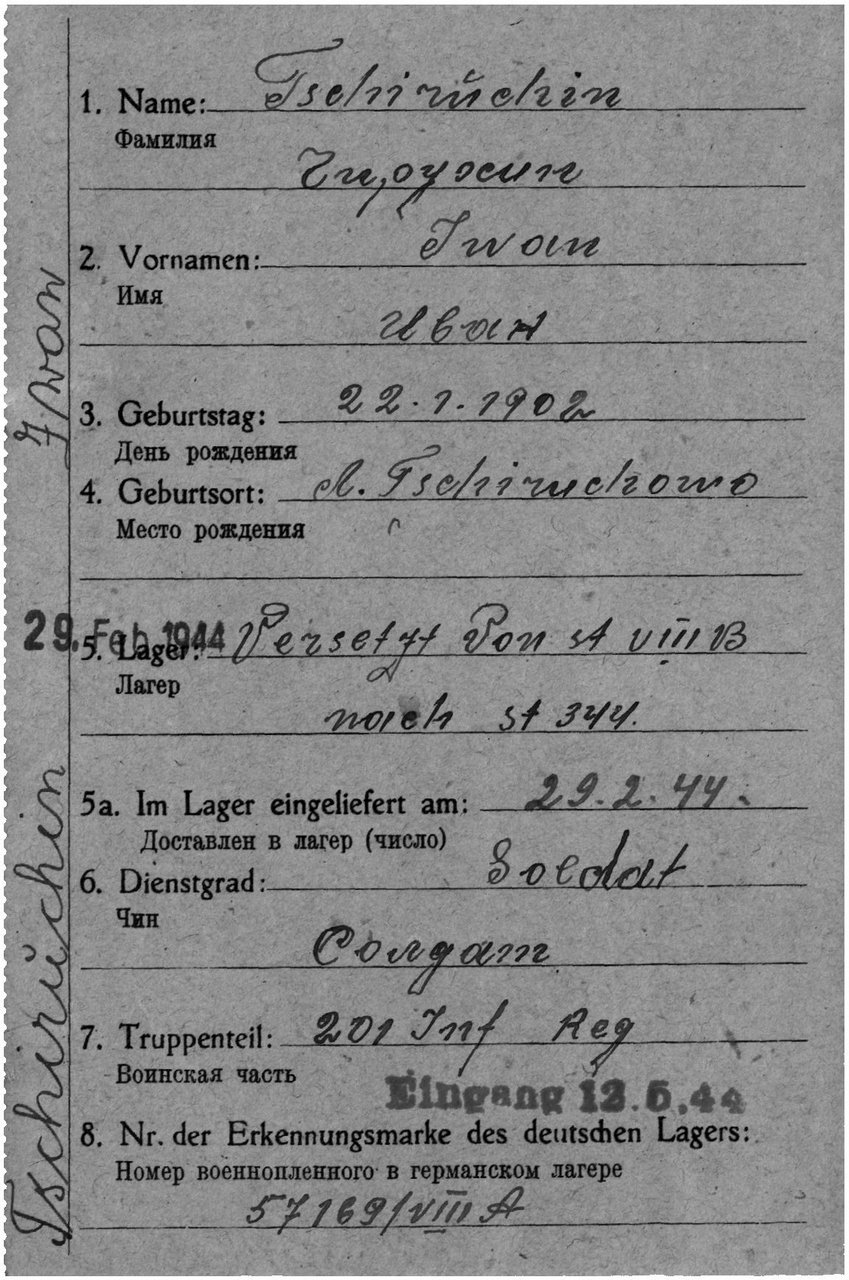 1. Name: Tschirŭchin
Фамилия
Чирухин
2. Vornamen: Iwan
Имя
Иван
3. Geburtstag: 22.1.1902
День рождения
4. Geburtsort: Tschiruchowo
Место рождения
29. Feb. 1944
5. Lager: Versetzt Von st VIII B
Лагер
nach st 344.
5a. Im Lager eingeliefert am: 29.2.44.
Доставлен в лагер (число)
6. Dienstgrad: Soldat
Чин
Солдат
7. Truppenteil: 201 Inf Reg
Воинская часть
Eingang 12.5.44
8. Nr. der Erkennungsmarke des deutschen Lagers:
Номер военнопленного в германском лагере
57169/VIII A
Tschirŭchin Iwan